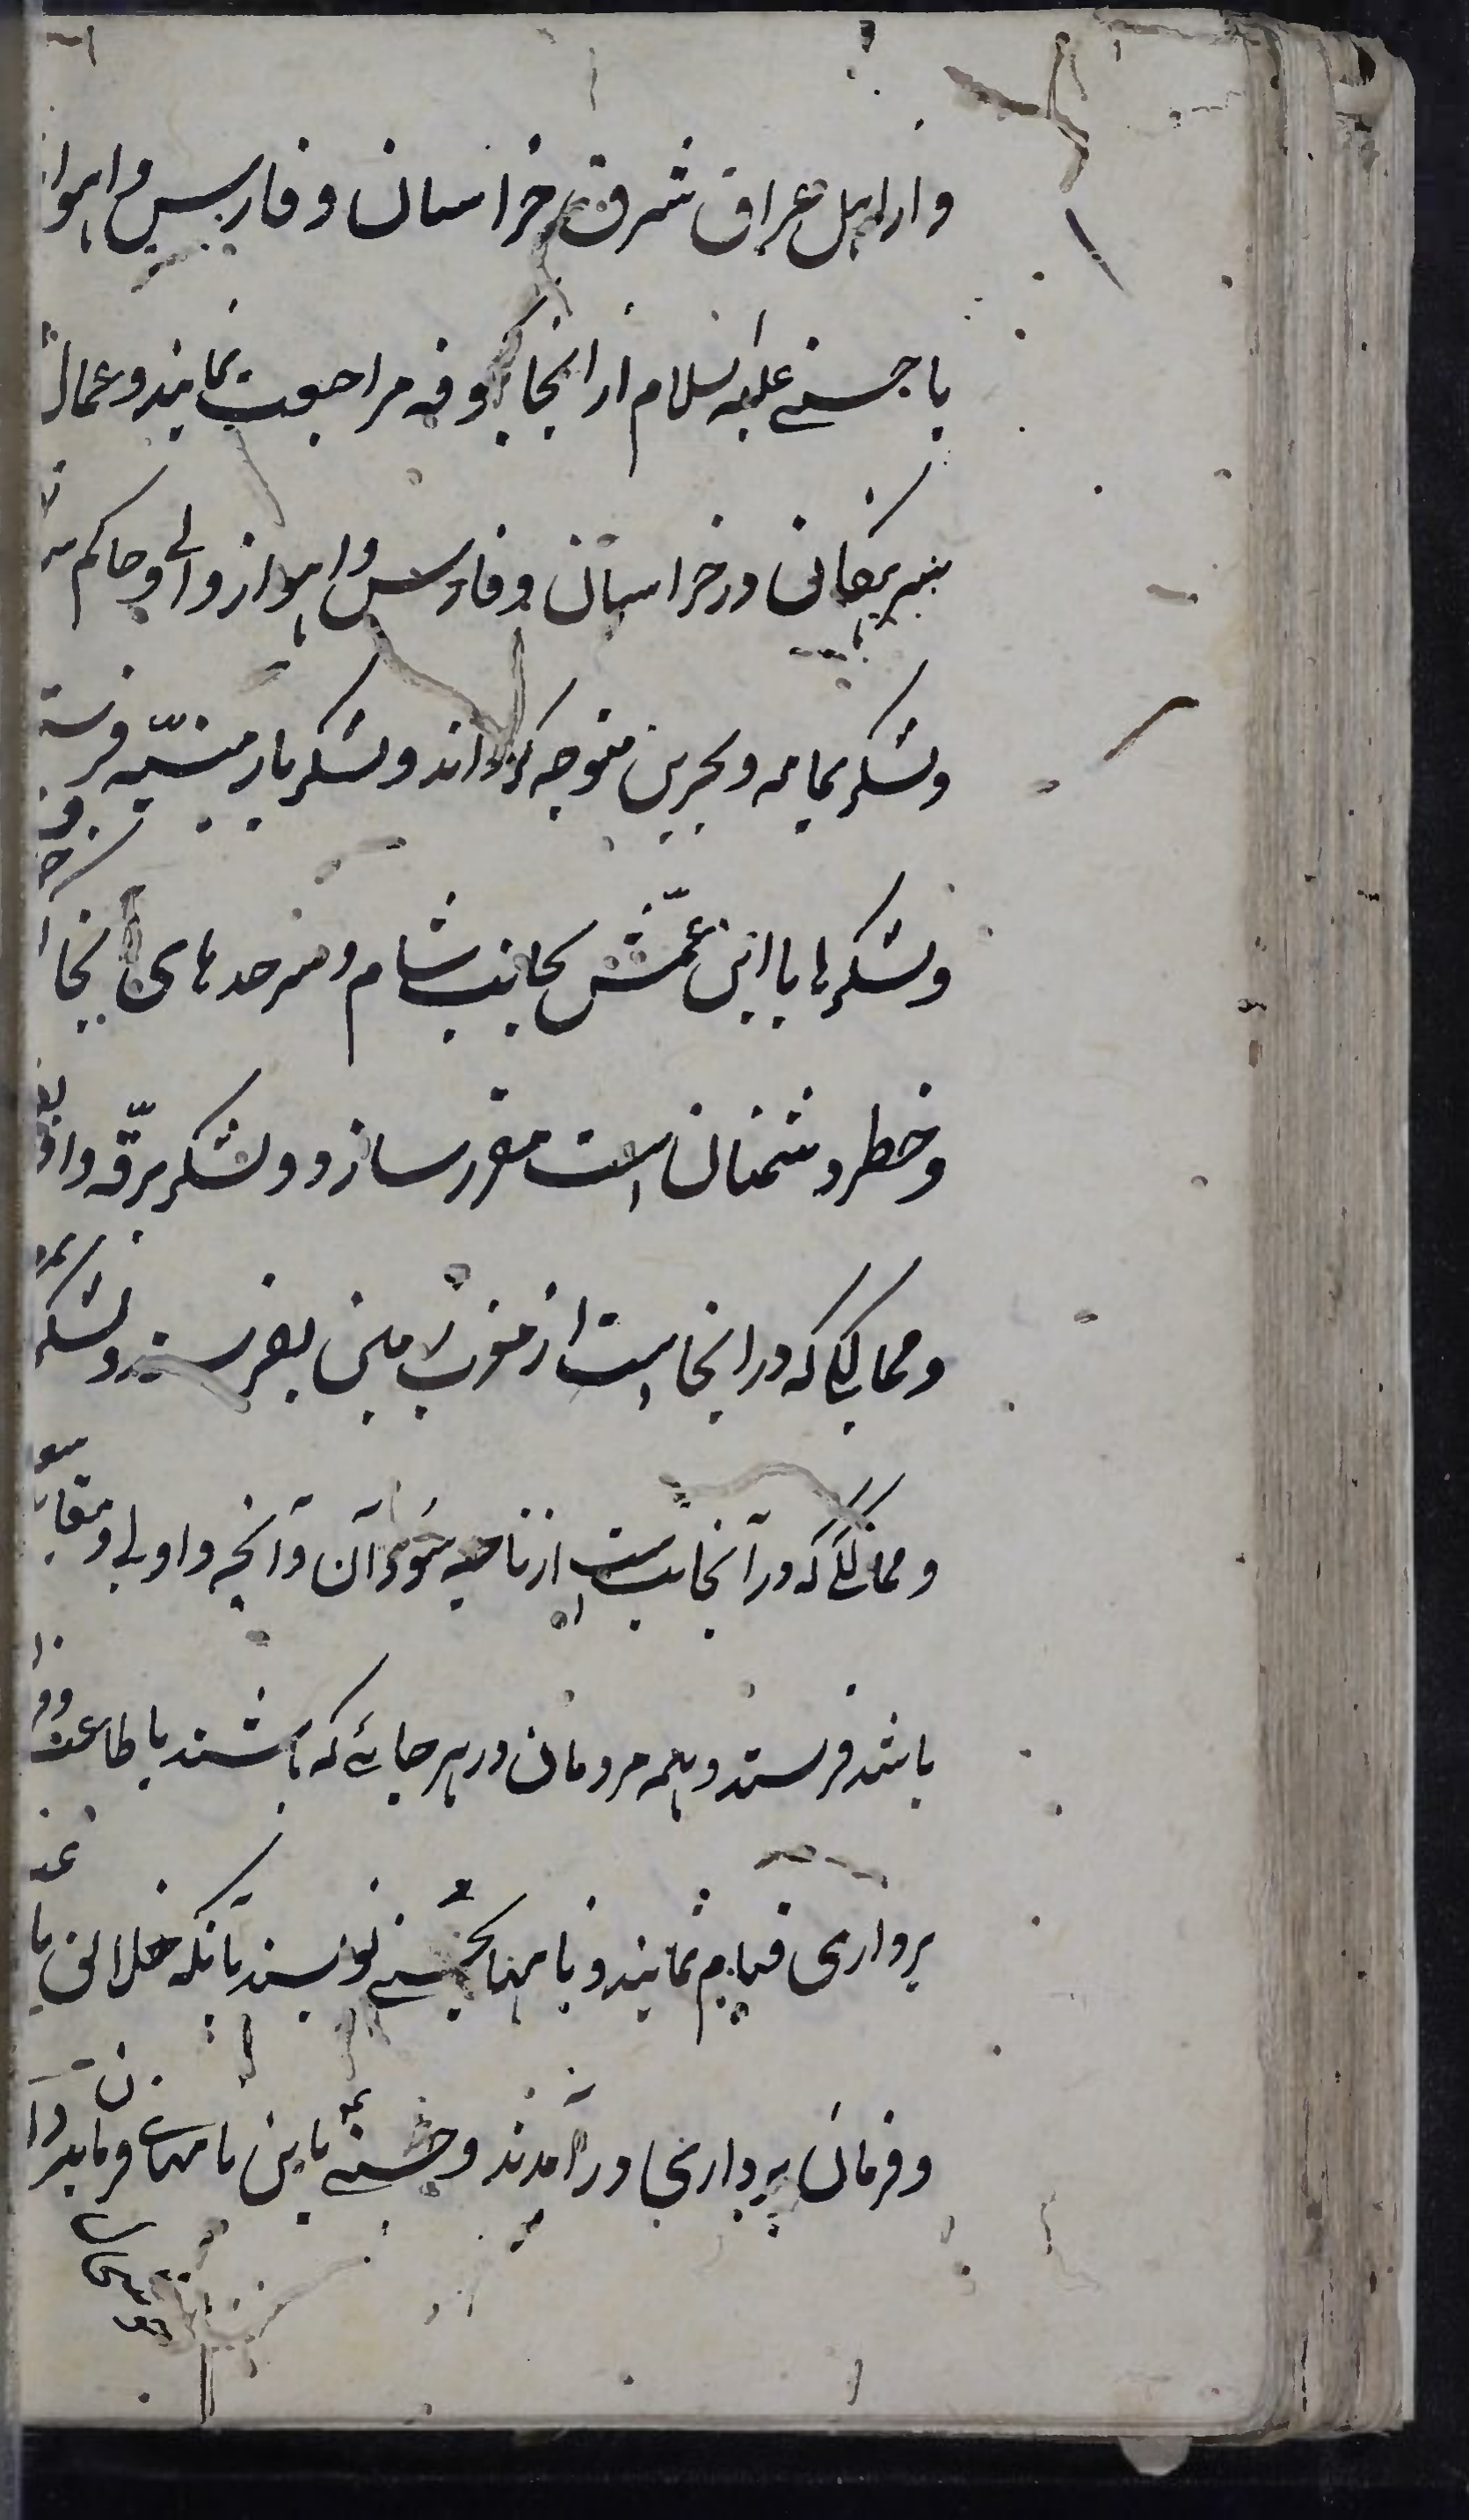 و از اهل عراق شرق خراسان و فارس و اهوا
با حسنی علیه السلام از انجا بکوفه مراجعت نمایند و عمال
در خراسان و فارس و اهواز والی و حاکم
و لشکر یمامه و بحرین متوجه کرداند و لشکر بارمنیّه فرستد
و لشکرها با ابن عمّش بجانب شام و سرحدهای انجا
و خطر دشمنان است مقرر سازد و لشکر برقّه و
و ممالکی که در انجاست از مغرب زمین بفرستد و لشکر
و ممالکی که در آنجاست از ناحیه آن و آنچه و اولی و
باشد فرستد و همه مردمان در هر جائے که باشند باطاعت
برداری قیام نمایند و نامها بحسنی نویسند بآنکه خلائق با
و فرمان برداری در آمدند و حسنی باین نامهای